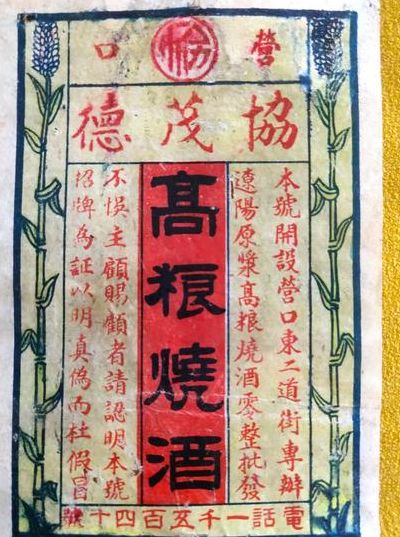 營口
恊
協茂德
本號開設營口東二道街專辦
遼陽原漿髙粮燒酒零整批發
髙粮燒酒
不悞主顧賜顧者請認明本號
招牌為証以明真偽而杜假冒
電話一千五百四十號